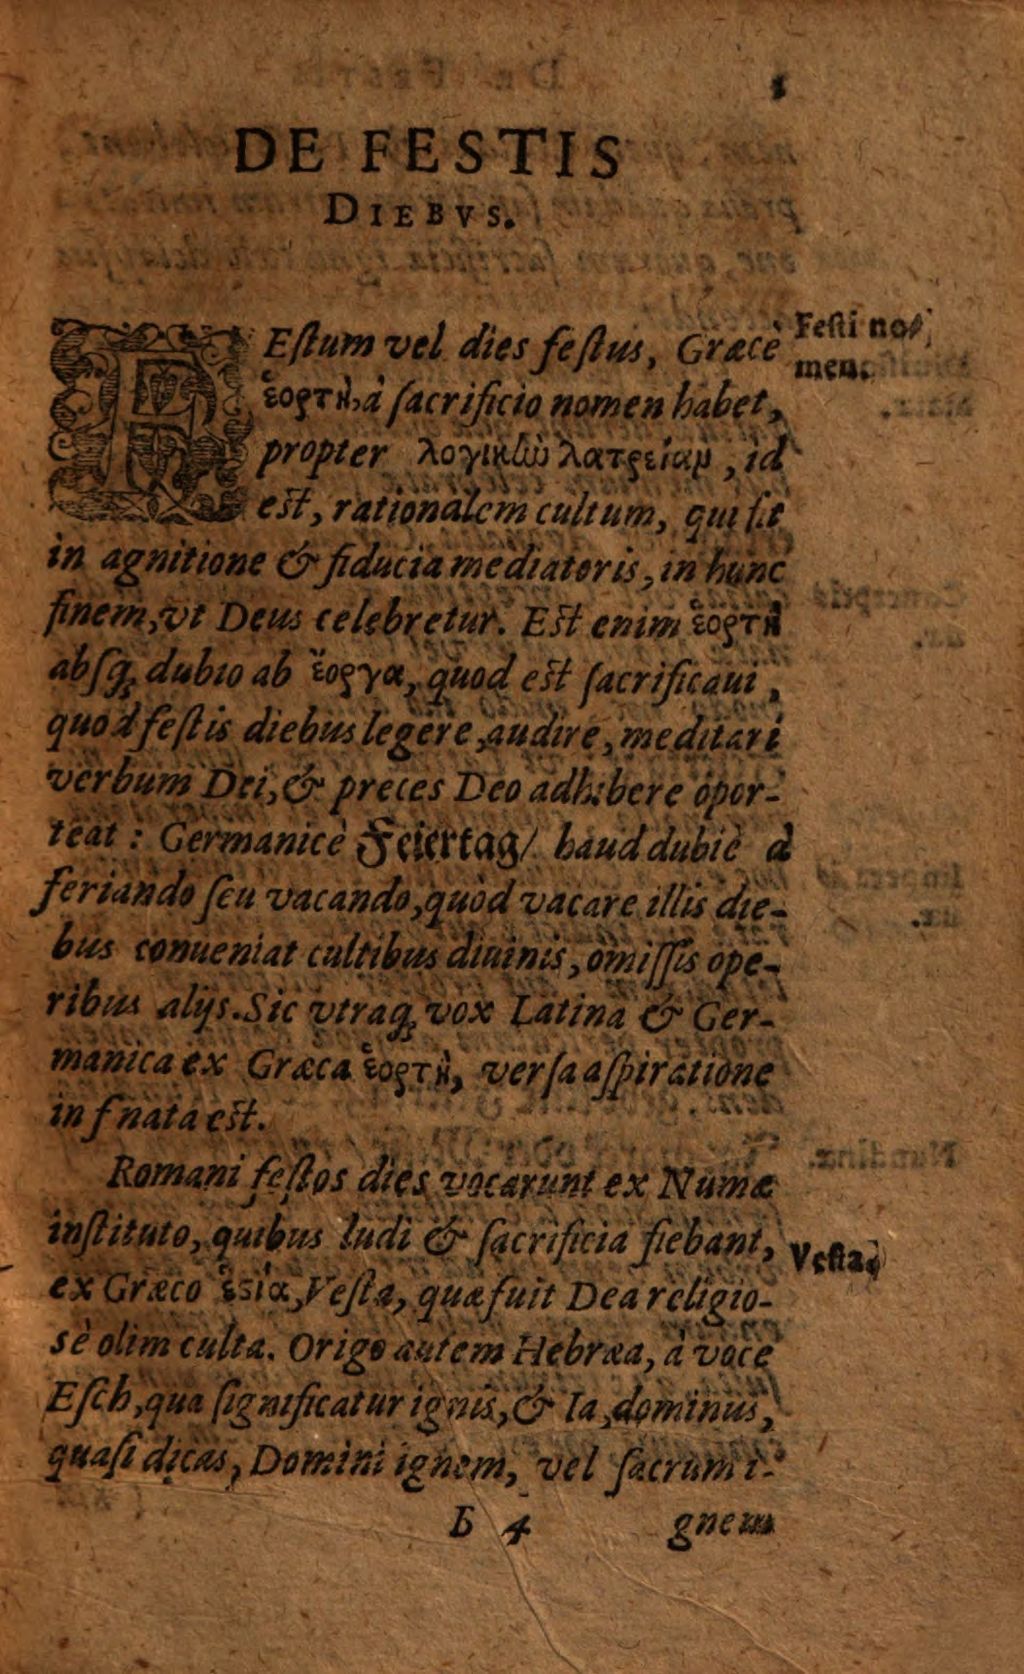 1
DE FESTIS
DIEBVS.
FEſtum vel dies feſtus, Græcè
ἑορτὴ, à ſacrificio nomen habet,
propter λογικὴν λατρείαν, id
eſt, rationalem cultum, qui fit
in agnitione & fiducia mediatoris, in hunc
finem, vt Deus celebretur. Eſt enim ἑορτὴ
abſq; dubio ab ἔοργα, quod eſt ſacrificaui,
quòd feſtis diebus legere, audire, meditari
verbum Dei, & preces Deo adhibere opor-
teat: Germanicè Feiertag/ haud dubiè à
feriando ſeu vacando, quòd vacare illis die-
bus conueniat cultibus diuinis, omiſſis ope-
ribus alijs. Sic vtraq; vox Latina & Ger-
manica ex Græca ἑορτὴ, verſa aſpiratione
in f nata eſt.
Romani feſtos dies vocarunt ex Numæ
inſtituto, quibus ludi & ſacrificia fiebant,
ex Græco ἑϛία, Veſta, quæ fuit Dea religio-
sè olim culta. Origo autem Hebræa, à voce
Eſch, qua ſignificatur ignis, & Ia, dominus,
quaſi dicas, Domini ignem, vel ſacrum i-
B 4 gnem
Feſti no-
men.
Veſta.